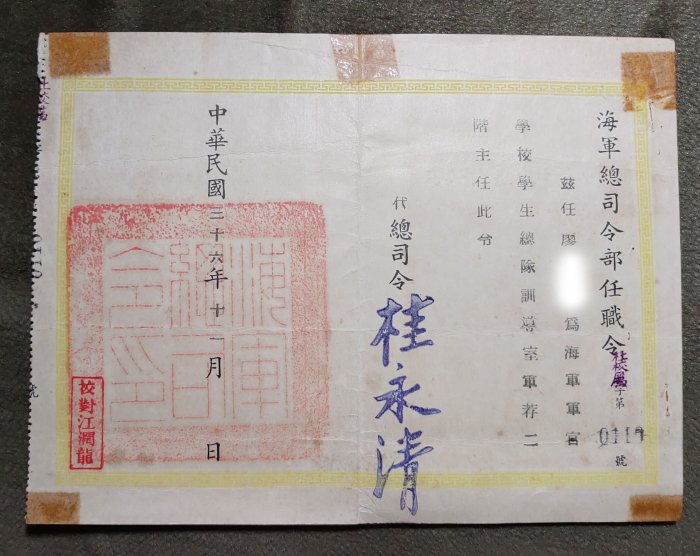 海軍總司令部任職令
字第0114號
茲任廖 為海軍軍官
學校學生總隊訓導室軍荐二
階主任此令
代總司令桂永清
中華民國三十六年十一月 日
海軍總司令印
校對江潤龍
號